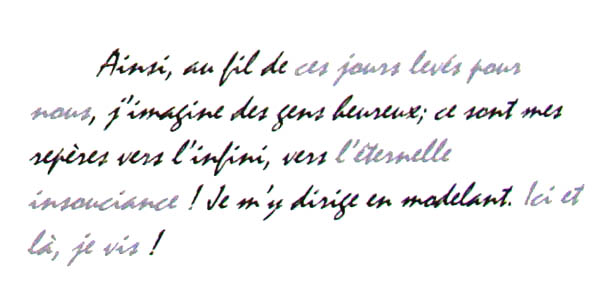 Ainsi, au fil de ces jours levés pour
nous, j'imagine des gens heureux; ce sont mes
repères vers l'infini, vers l'éternelle
insouciance ! Je m'y dirige en modelant. Ici et
là, je vis !